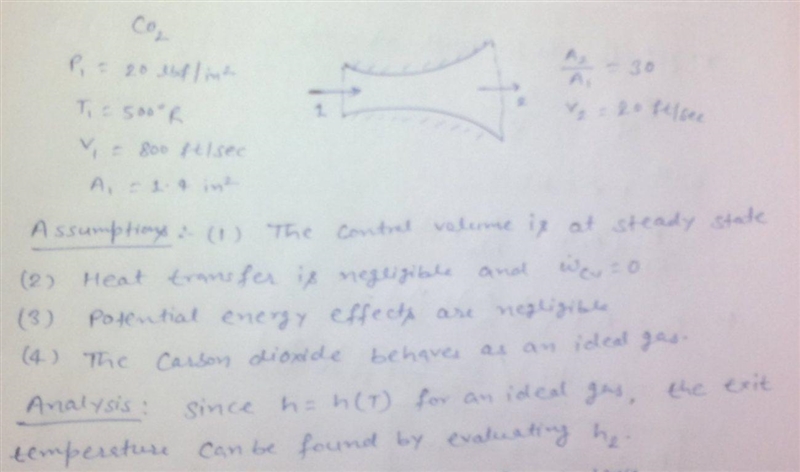 CO2
P1 = 20 lbf/in²
T1 = 500°R
V1 = 800 ft/sec
A1 = 1.4 in²
1
2
A2/A1 = 30
V2 = 20 ft/sec
Assumptions :- (1) The control volume is at steady state
(2) Heat transfer is negligible and Ẇcv = 0
(3) Potential energy effects are negligible
(4) The Carbon dioxide behaves as an ideal gas.
Analysis : Since h = h(T) for an ideal gas, the exit
temperature can be found by evaluating h2.